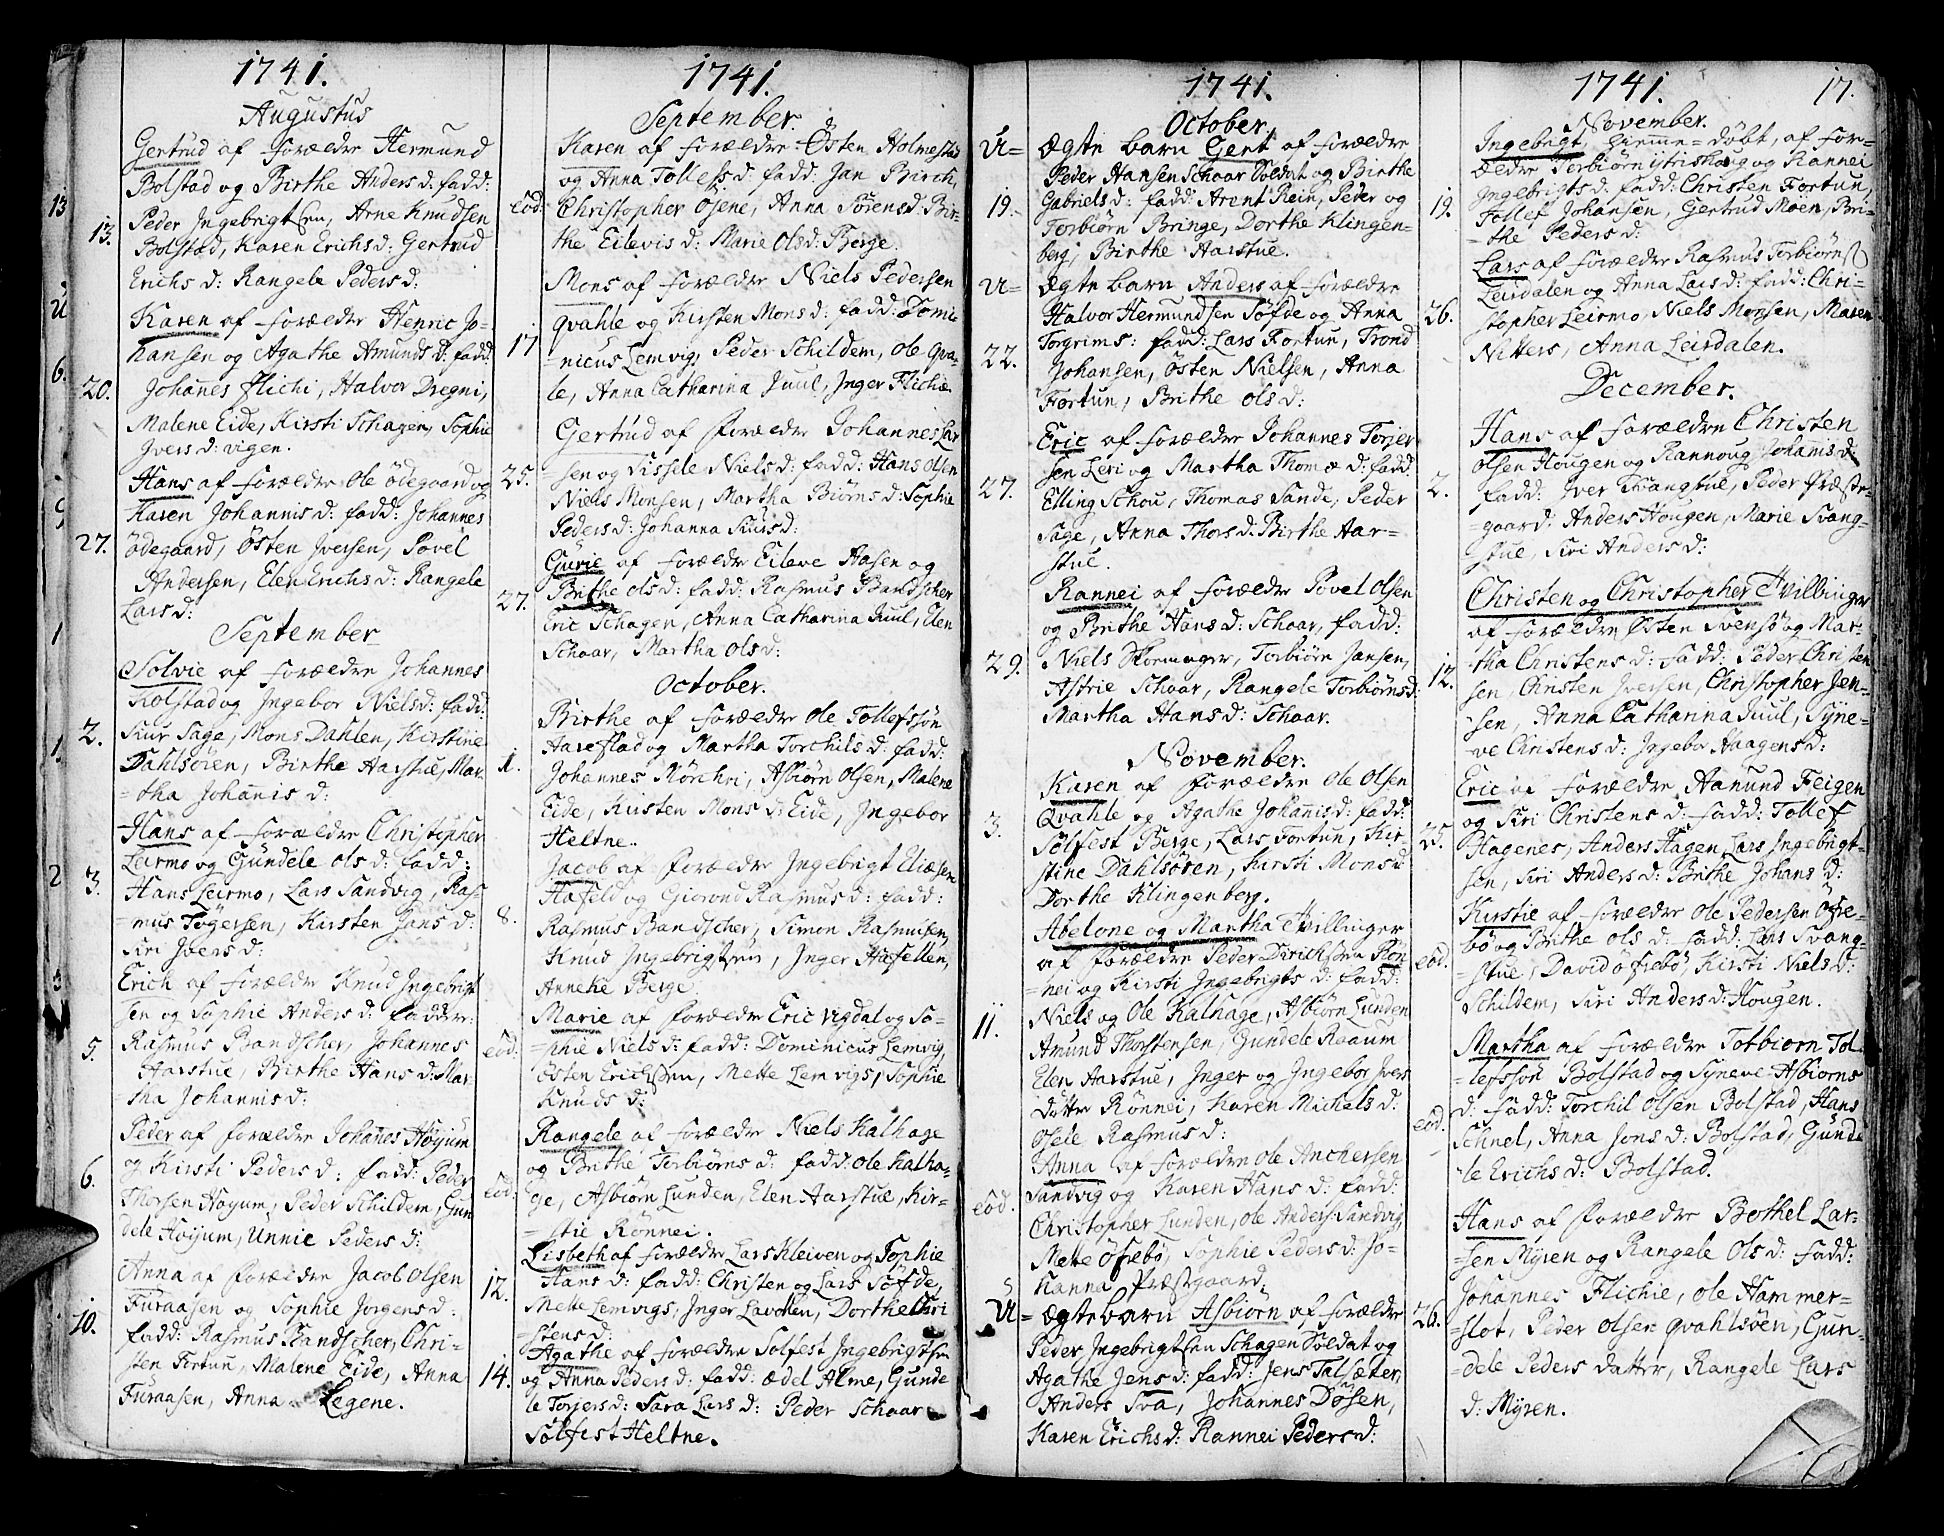 1741.
Augustus
Gertrud af forældre Hermund
Bolstad og Birthe Anders d: fadd:
13. Peder Ingebrigtsen, Arne Knudsen
Bolstad, Karen Erichs d: Gertrud
Erichs d: Rangele Peders d:
Karen af forældre Henric Jo-
hansen og Agathe Amunds d: fadd:
20. Johanes Flichi, Halvor Dregni,
Malene Eide, Kirsti Schagen, Sophie
Jvers d: vigen.
Hans af forældre Ole ödegaard og
Karen Johannis d: fadd: Johannes
27. ödegaard, Östen Jversen, Povel
Andersen, Elen Erichs d: Rangele
Lars d:
September
Solvie af forældre Johannes
Kolstad og Ingebor Niels d: fadd:
2. Siur Sage, Mons Dahlen, Kirstine
Dahlsören, Birthe Aarstue, Mar-
=tha Johanis d:
Hans af forældre Christopher
Leirmo og Gundele Ols d: fadd:
3. Hans Leirmo, Lars Sandvig, Ras-
=mus Togersen, Kirsten Jans d:
Siri Jvers d:
Erich af forældre Knud Ingebrigt
sen og Sophie Anders d: faddere:
5. Rasmus Bandscher, Johannes
Harstue, Birthe Hans d: Mar-
tha Johannis d:
Peder af forældre Johanes Höyum
6. og Kirsti Peders d: fadd: Peder
Thorsen Höyum, Peder Schildem, Gun
dele Höyum, Unnie Peders d:
Anna af forældre Jacob Olsen
Furaasen og Sophie Jörgens d:
10. fadd: Rasmus Bandscher, Chri-
sten Fortun, Malene Eide, Anna
Furaasen, Anna Legene.
1741.
September.
Karen af forældre Östen Holmestad
og Anna Tollefs d: fadd: Jan Birch,
eod: Christopher Osene, Anna Sörens d: Bir-
the Eilevis d: Marie Ols d: Berge.
Mons af forældre Niels Pedersen
qvahle og Kirsten Mons d: fadd: Domi
17 =nicus Lemvig, Peder Schildem, Ole Qva-
le, Anna Catharina Juul, Inger Flichie.
Gertrud af forældre Johannes Lar
25. =sen og Sissele Niels d: fadd: Hans Olsen
Niels Monsen, Martha Biörns d: Sophie
Peders d: Johanna Siurs d:
Gurie af forældre Eileve Aasen og
27. Brithe Ols d: fadd: Rasmus Bandscher
Eric Schagen, Anna Catharina Juul, Elen
Schaar, Martha Ols d:
October.
Birthe af forældre Ole Tollefssön
Aarestad og Martha Torchils d: fadd:
1. Johannes Körchri, Asbiörn Olsen, Malene
Eide, Kirsten Mons d: Eide, Ingebor
Heltne.
Jacob af forældre Ingebrigt
Hafeld og Giorond Rasmus d: fadd:
8. Rasmus Bandscher, Simon Rasmusen,
Knud Ingebrigtsen, Inger Hafellen,
Anneke Berge.
Marie af forældre Eric vigdal og So-
eod. =phie Niels d: fadd: Dominicus Lemvig,
Osten Erichsen, Mette Lemvigs, Sophie
Knuds d:
Rangele af forældre Niels Kalhage
og Brithe Torbiörns d: fadd: Ole Kalha-
eod. ge, Asbiörn Lunden, Elen Aarstue, Kir-
=stie Rönnei.
Lisbeth af forældre Lars Kleiven og Sophie
12. Hans d: fadd: Christen og Lars Söfde,
Mette Lemvigs, Inger Lavollen, Dorthe Chri
=stens d:
Agathe af forældre Solfest Ingebrigtsen
14. og Anna Peders d: fadd: Ædel Alme, Gunde
le Torjers d: Sara Lars d: Peder Schaar
Solfest Heltne.
1741.
October.
U= Ægte barn Gert af forældre
Peder Hansen Schaar Soldat og Birthe
19. Gabriels d: fadd: Arent Rein, Peder og
Torbiörn Bringe, Dorthe Klingen-
berg, Birthe Aarstue.
U= Ægte barn Anders af forældre
Halvor Hermundsen Söfde og Anna
Torgrims: fadd: Lars Fortun, Trond
22. Johansen, Östen Nielsen, Anna
Fortun, Brithe Ols d:
Eric af forældre Johannes Torjer
sen Leri og Martha Thomæ d: fadd:
27. Elling Schou, Thomas Sande, Peder
Sage, Anna Thors d: Birthe Aar-
stue.
Rannei af forældre Povel Olsen
og Brithe Hans d: Schaar, fadd:
29. Niels Skormager, Torbiörn Jansen,
Astrie Schaar, Rangele Torbiörns d:
Martha Hans d: Schaar.
November.
Karen af forældre Ole Olsen
Qvahle og Agathe Johanis d: fadd:
3. Solfest Berge, Lars Fortun, Kir
stine Dahlsören, Kirsti Mons d:
Dorthe Klingenberg.
Abelone og Martha Tvillinger
af forældre Peder Dirichsen Rön
=nei og Kirsti Ingebrigts d: fadd:
11. Niels og Ole Kalhage, Asbiörn Lunden
Amund Thorstensen, Gundele Raaum
Elen Aarstue, Inger og Ingebor Jvers
döttre Rönnei, Karen Michels d:
Osele Rasmus d:
Anna af forældre Ole Anchersen
Sandvig og Karen Hans d: fadd:
eod. Christopher Lunden, Ole Anders: Sandvig,
Mette Öfrebö, Sophie Peders d: Jo-
hanna Præstgaard.
U= Ægte barn Asbiörn af forældre
Peder Ingebrigtsen Schagen Soldat og
Agathe Jens d: fadd: Jens Talsæter,
Anders Sva, Johannes Dösen,
Karen Erichs d: Rannei Peders d:
1741. 17.
November.
Ingebrigt, hiemme-döbt, af for-
ældre Torbiörn og Rannei
19. Ingebrigts d: fadd: Christen Fortun,
Tollef Johansen, Gertrud Moen, Bri-
=the Peders d:
Lars af forældre Rasmus Torbiörns
Leirdalen og Anna Lars d: fadd: Chri-
26. stopher Leirmo, Niels Monsen, Maren
Nitters, Anna Leirdalen.
December.
Hans af forældre Christen
Olsen Hougen og Rannoug Johanis d:
2. fadd: Jver Svangstue, Peder Præste-
gaard. Anders Hougen, Marie Svang-
stue, Siri Anders d:
Christen og Christopher Tvillinger
af forældre Östen Svensö og Mar-
12. tha Christens d: fadd: Peder Christen
sen, Christen Jversen, Christopher Jen-
sen, Anna Catharina Juul, Syne-
ve Christens d: Ingebor Haagens d:
Eric af forældre Aanund Feigen
og Siri Christens d: fadd: Tollef
25. Hagenes, Anders Hagen, Lars Ingebrigt-
sen, Siri Anders d: Brithe Johans d:
Kirstie af forældre Ole Pedersen Öfre-
bö og Brithe Ols d: fadd: Lars Svang-
eod. =stue, David Öfrebö, Kirsti Niels d:
Schildem, Siri Anders d: Hougen.
Martha af forældre Torbiorn Tol-
=lefssön Bolstad og Syneve Asbiorns
d: fadd: Torchil Olsen Bolstad, Hans
eod. Schnel, Anna Jons d: Bolstad, Gunde
le Erichs d: Bolstad.
Hans af forældre Bothel Lar-
=sen Myren og Rangele Ols d: fadd:
Johannes Flichie, Ole Hammer-
26. slot, Peder Olsen qvahlsöen, Gun-
=dele Peders datter, Rangele Lars
d: Myren.